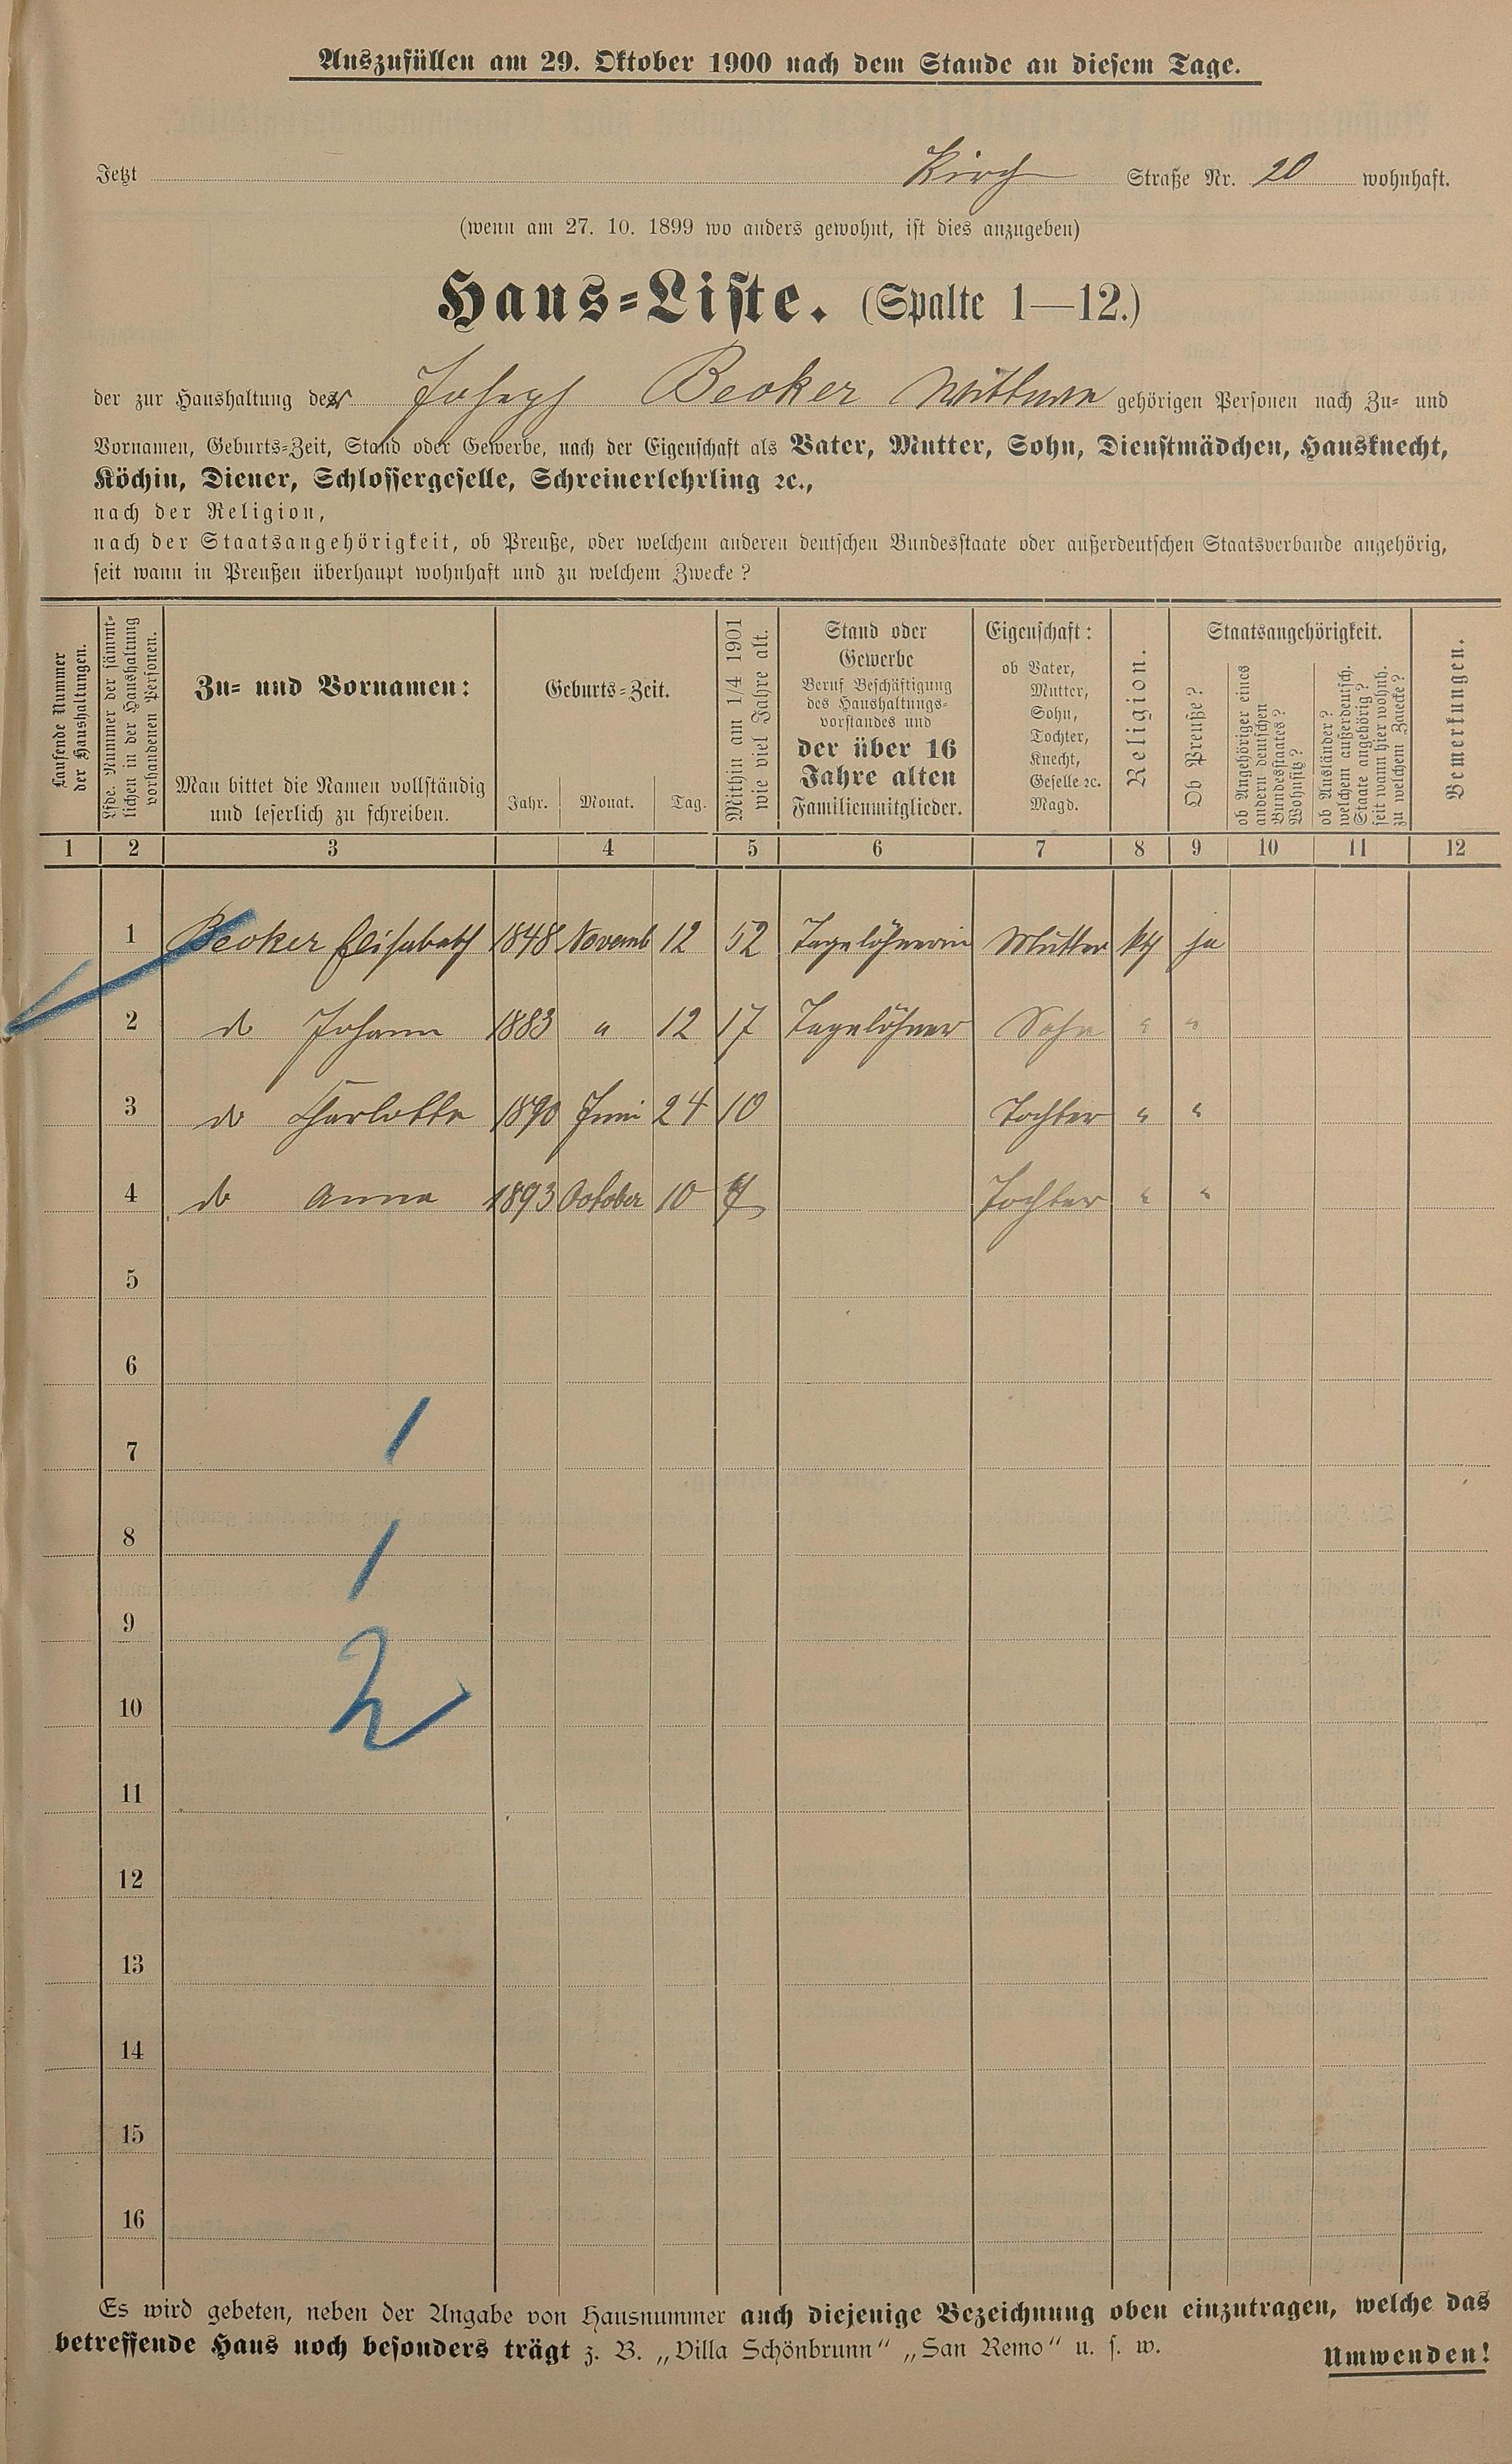 Auszufüllen am 29. Oktober 1900 nach dem Stande an diesem Tage.
Jetzt Kirch Straße Nr. 20 wohnhaft.
(wenn am 27. 10. 1899 wo anders gewohnt, ist dies anzugeben)
Haus-Liste. (Spalte 1—12.)
der zur Haushaltung der Joseph Becker Wittwe gehörigen Personen nach Zu- und
Vornamen, Geburts-Zeit, Stand oder Gewerbe, nach der Eigenschaft als Vater, Mutter, Sohn, Dienstmädchen, Hausknecht,
Köchin, Diener, Schlossergeselle, Schreinerlehrling ꝛc.,
nach der Religion,
nach der Staatsangehörigkeit, ob Preuße, oder welchem anderen deutschen Bundesstaate oder außerdeutschen Staatsverbande angehörig,
seit wann in Preußen überhaupt wohnhaft und zu welchem Zwecke?
Laufende Nummer
der Haushaltungen.
Lfde. Nummer der sämmt-
lichen in der Haushaltung
vorhandenen Personen.
Zu- und Vornamen:
Man bittet die Namen vollständig
und leserlich zu schreiben.
Geburts-Zeit.
Jahr. Monat. Tag.
Mithin am 1/4 1901
wie viel Jahre alt.
Stand oder
Gewerbe
Beruf Beschäftigung
des Haushaltungs-
vorstandes und
der über 16
Jahre alten
Familienmitglieder.
Eigenschaft:
ob Vater,
Mutter,
Sohn,
Tochter,
Knecht,
Geselle ꝛc.
Magd.
Religion.
Staatsangehörigkeit.
Ob Preuße?
ob Angehöriger eines
andern deutschen
Bundesstaates?
Wohnsitz?
ob Ausländer?
welchem außerdeutsch.
Staate angehörig?
seit wann hier wohnh.
zu welchem Zwecke?
Bemerkungen.
1 2 3 4 5 6 7 8 9 10 11 12
1 Becker Elisabeth 1848 Novemb 12 52 Tagelöhnerin Mutter kth ja
2 do Johann 1883 " 12 17 Tagelöhner Sohn " "
3 do Charlotte 1890 Juni 24 10 Tochter " "
4 do Anna 1893 October 10 7 Tochter " "
5
6
7 1
8 1
9
10 2
11
12
13
14
15
16
Es wird gebeten, neben der Angabe von Hausnummer auch diejenige Bezeichnung oben einzutragen, welche das
betreffende Haus noch besonders trägt z. B. „Villa Schönbrunn" „San Remo" u. s. w.
Umwenden!